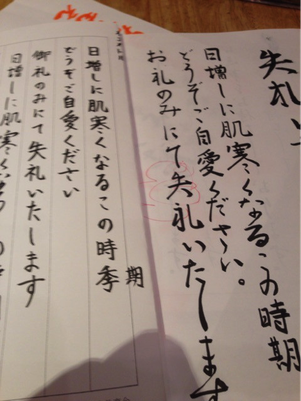 失礼
日増しに肌寒くなるこの時期
どうぞご自愛ください。
お礼のみにて失礼いたします
日増しに肌寒くなるこの時季
期
どうぞご自愛ください
御礼のみにて失礼いたします
日増しに肌寒くなるこの時